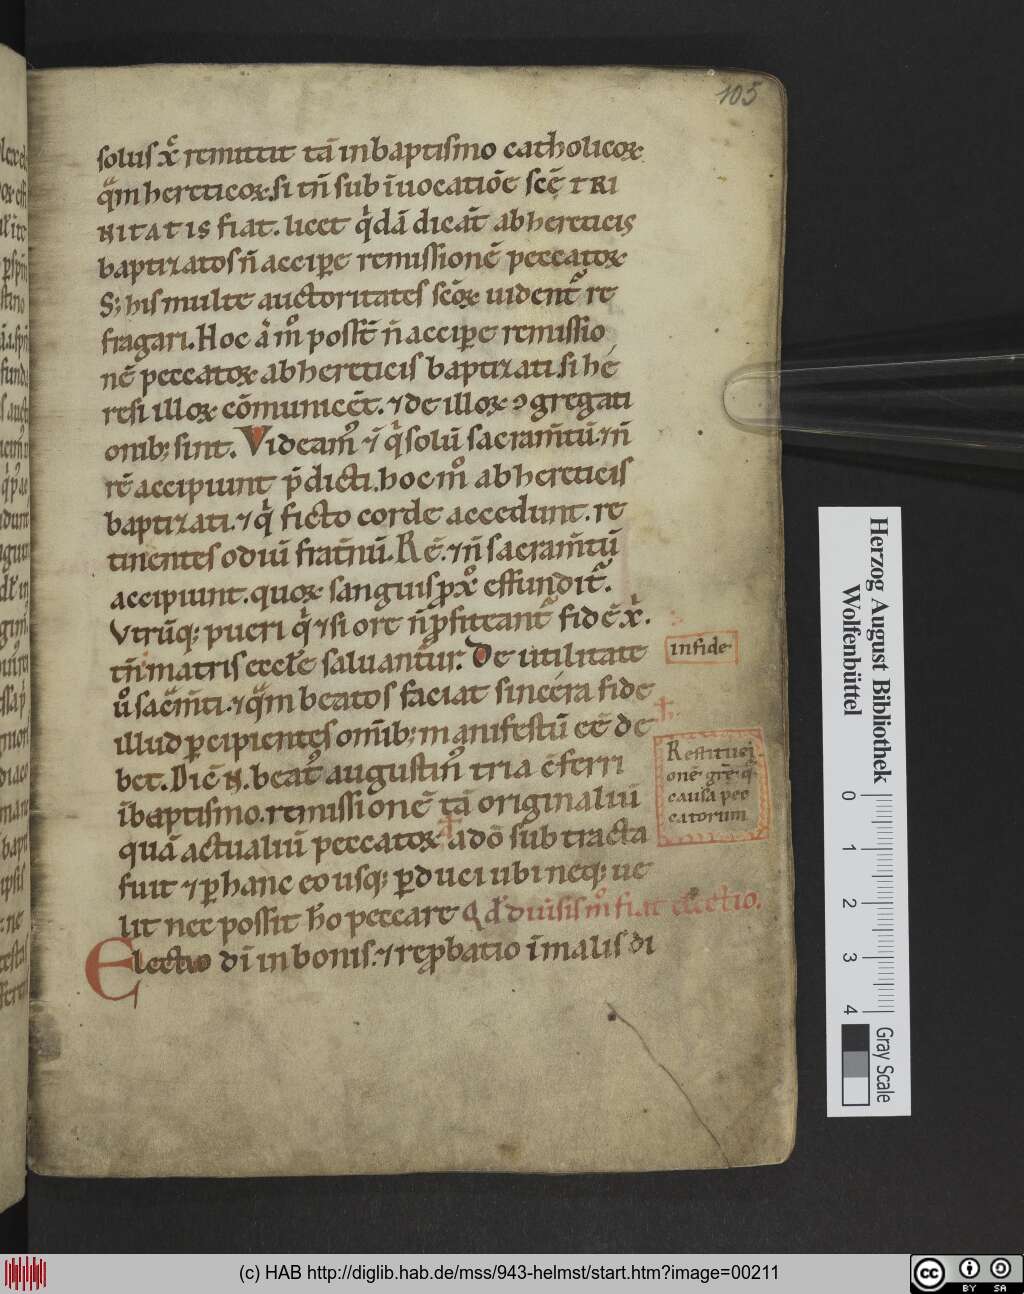 105
solus xp̄c remittit tā in baptismo catholicoꝝ
qͣm hereticoꝝ. si tn̄ sub īuocatiōe scē TRI
NITATIS fiat. licet qͥdā dicāt ab hereticis
baptizatos n̄ accipe remissionē peccatoꝝ
S; his multe auctoritates scōꝝ uidentᷣ re
fragari. Hoc ... mͦ possēt n̄ accipe remissio
nē peccatoꝝ ab hereticis baptizati. si hé
resi illoꝝ cōmunicēt. ⁊ de illoꝝ ꝯgregati
onib; sint. Videamꝰ ⁊ ... qͥ solū sacram̄tū. ⁊ n̄
rē accipiunt p̄dicti. hoc mͦ ab hereticis
baptizati. ⁊ qͥ ficto corde accedunt. re
tinentes odiū frat̄nū. Rē. ⁊ n̄ sacram̄tū
accipiunt. quoꝝ sanguis ꝓ xͦ effunditᷣ.
Vtrūq; pueri qͥ ⁊ si ore n̄ ꝓfiteantᷣ fidē xͥ.
tn̄ matris eccłe saluantur. De utilitate
infide
uͦ sac̄m̄ti. ⁊ qͣm beatos faciat sincera fide
illud ꝑcipientes om̄ib; manifestū eē de
Restituci
bet. Diē N. beatꝰ augustinꝰ tria ēferri
onē grē q
ī baptismo. remissionē tā originaliū
causa pec
catorum
quā actualiū peccatoꝝ a dō subtracta
fuit ⁊ ꝑ hanc eo usq; ꝑduci ubi neq; ue
lit nec possit hō peccare Qd̄ diuisis mͦ fiat electio.
Electio dī in bonis. ⁊ reꝓbatio ī malis di
Herzog August Bibliothek
Wolfenbüttel
0 1 2 3 4
Gray Scale
(c) HAB http://diglib.hab.de/mss/943-helmst/start.htm?image=00211
cc BY SA